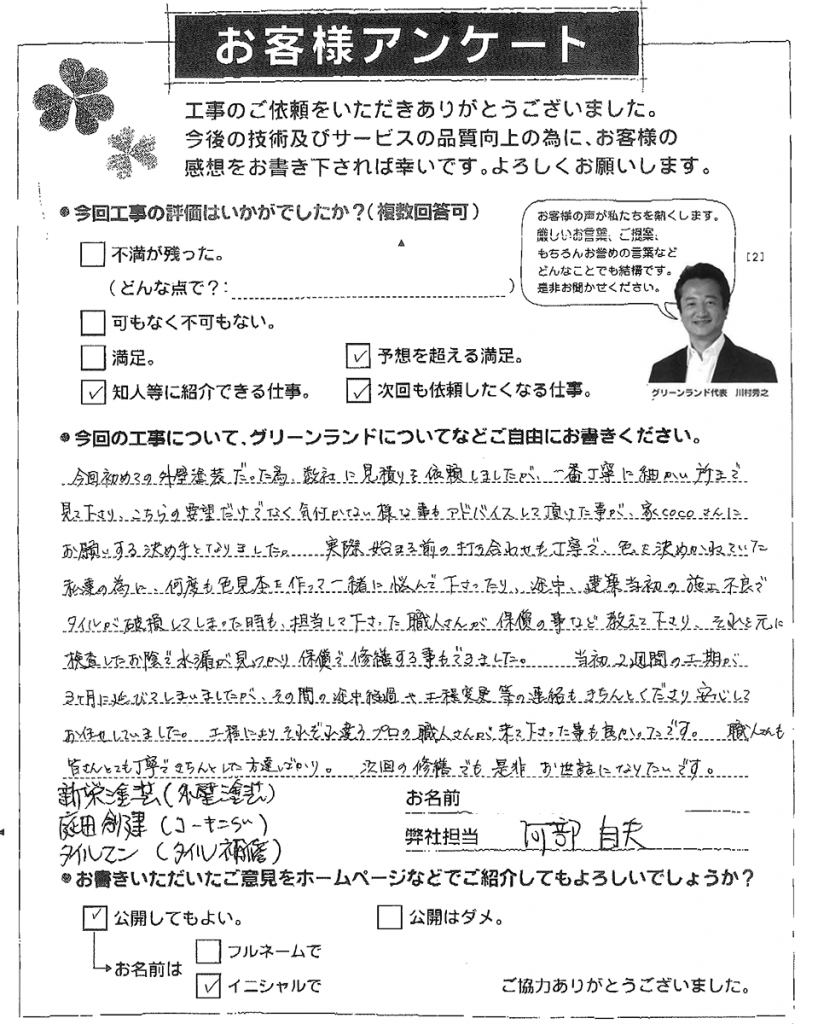 お客様アンケート
工事のご依頼をいただきありがとうございました。
今後の技術及びサービスの品質向上の為に、お客様の
感想をお書き下されば幸いです。よろしくお願いします。
●今回工事の評価はいかがでしたか？(複数回答可)
お客様の声が私たちを熱くします。
厳しいお言葉、ご提案、
もちろんお誉めの言葉など
どんなことでも結構です。
是非お聞かせください。
[2]
不満が残った。
(どんな点で？: )
可もなく不可もない。
満足。
✓ 予想を超える満足。
✓ 知人等に紹介できる仕事。
✓ 次回も依頼したくなる仕事。
グリーンランド代表 川村秀之
●今回の工事について、グリーンランドについてなどご自由にお書きください。
今回初めての外壁塗装だった為、数社に見積りを依頼しましたが、一番丁寧に細かい所まで
見て下さり、こちらの要望だけでなく気付かない様な事もアドバイスして頂けた事が、家cocoさんに
お願いする決め手となりました。 実際始まる前の打ち合わせも丁寧で、色を決めかねていた
私達の為に、何度も色見本を作って一緒に悩んで下さったり、途中、建築当初の施工不良で
タイルが破損してしまった時も、担当して下さった職人さんが保償の事など教えて下さり、それを元に
検査したお陰で水漏が見つかり保償で修繕する事もできました。 当初2週間の工期が
3ヶ月に延びてしまいましたが、その間の途中経過や工程変更等の連絡もきちんとくださり安心して
お任せしていました。 工程によりそれぞれ違うプロの職人さんが来て下さった事も良かったです。 職人さんも
皆さんとても丁寧できちんとした方達ばかり。 次回の修繕でも是非お世話になりたいです。
新栄塗装(外壁塗装)
庭田創建(コーキング)
タイルマン(タイル補修)
お名前
弊社担当 阿部
●お書きいただいたご意見をホームページなどでご紹介してもよろしいでしょうか？
✓ 公開してもよい。
公開はダメ。
お名前は
フルネームで
✓ イニシャルで
ご協力ありがとうございました。